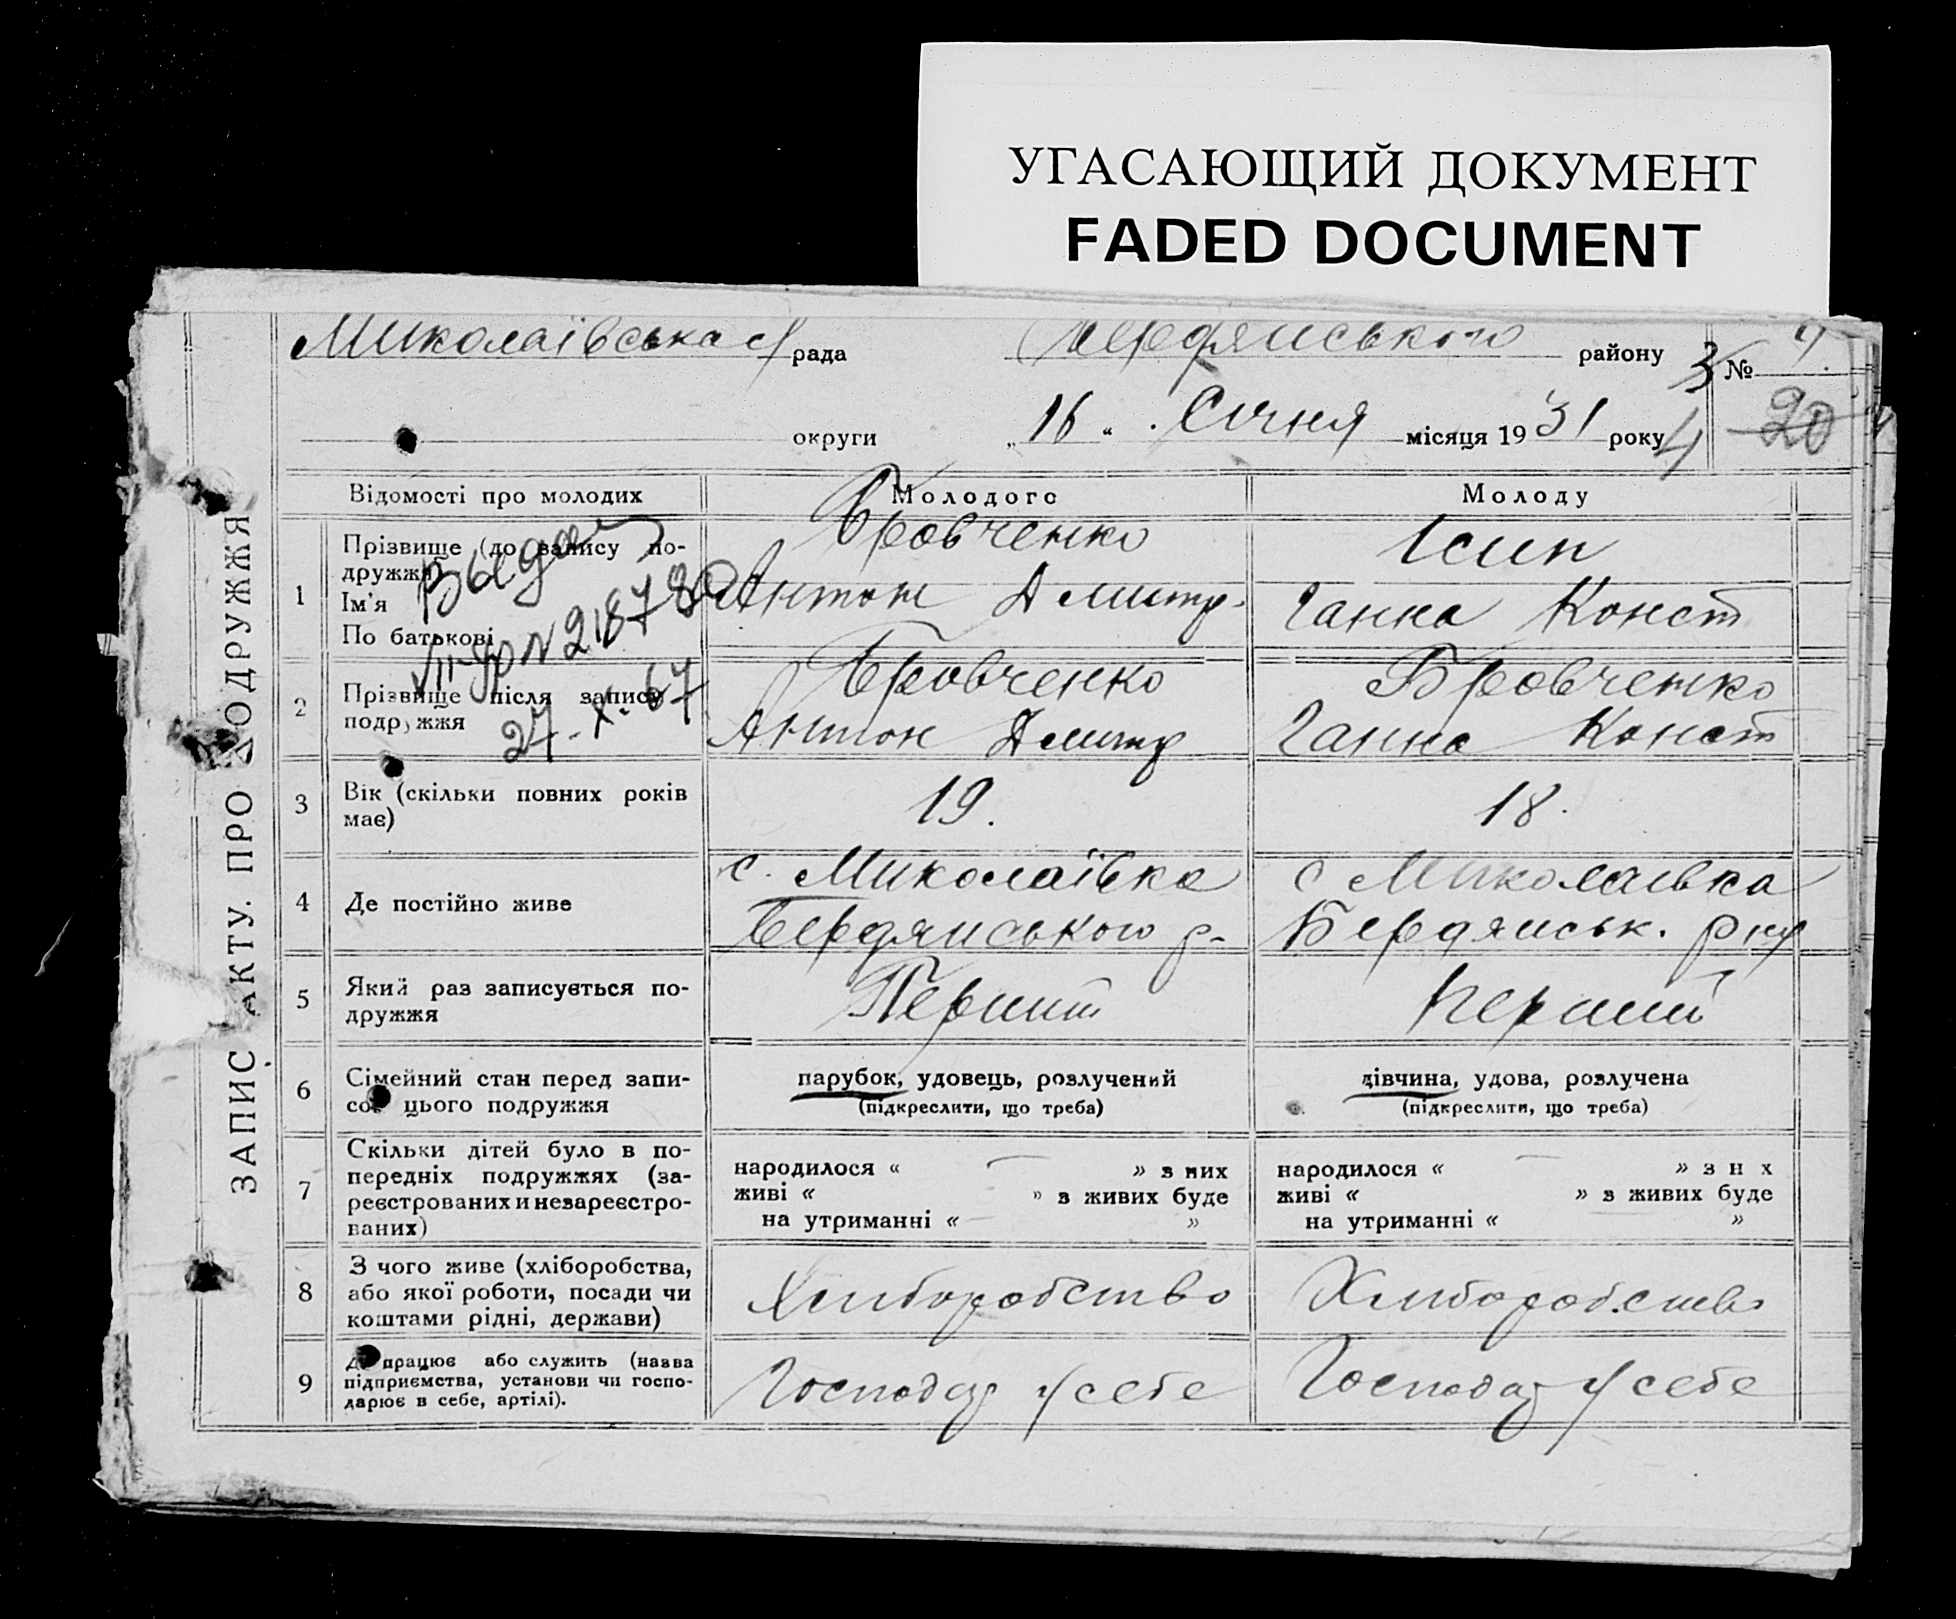 УГАСАЮЩИЙ ДОКУМЕНТ
FADED DOCUMENT
ЗАПИС АКТУ. ПРО ОДРУЖЖЯ
Миколаївська с/ рада Бердянського району № 4
3
4
20
округи „16“ Січня місяця 1931 року
Відомості про молодих Молодого Молоду
1 Прізвище (до запису подружжя
Ім'я
По батькові
Бровченко
Антон Дмитр.
Ганна Конст
Выдан
VII-ЯР № 218780
27-X-67
2 Прізвище після запису
подружжя
Бровченко
Антон Дмитр
Бровченко
Ганна Конст
3 Вік (скільки повних років
має)
19.
18.
4 Де постійно живе
с. Миколаївка
Бердянського р-
с Миколаївка
Бердянськ. р-ну
5 Який раз записується по-
дружжя
Перший
Перший
6 Сімейний стан перед запи-
сом цього подружжя
парубок, удовець, розлучений
(підкреслити, що треба)
дівчина, удова, розлучена
(підкреслити, що треба)
7 Скільки дітей було в по-
передніх подружжях (за-
реєстрованих и незареєстро-
ваних)
народилося « — » з них
живі « » з живих буде
на утриманні « — »
народилося « — » з н х
живі « » з живих буде
на утриманні « »
8 З чого живе (хліборобства,
або якої роботи, посади чи
коштами рідні, держави)
Хлиборобство
Хлиборобство
9 Де працює або служить (назва
підприємства, установи чи госпо-
дарює в себе, артілі).
Господар у себе
Господар у себе